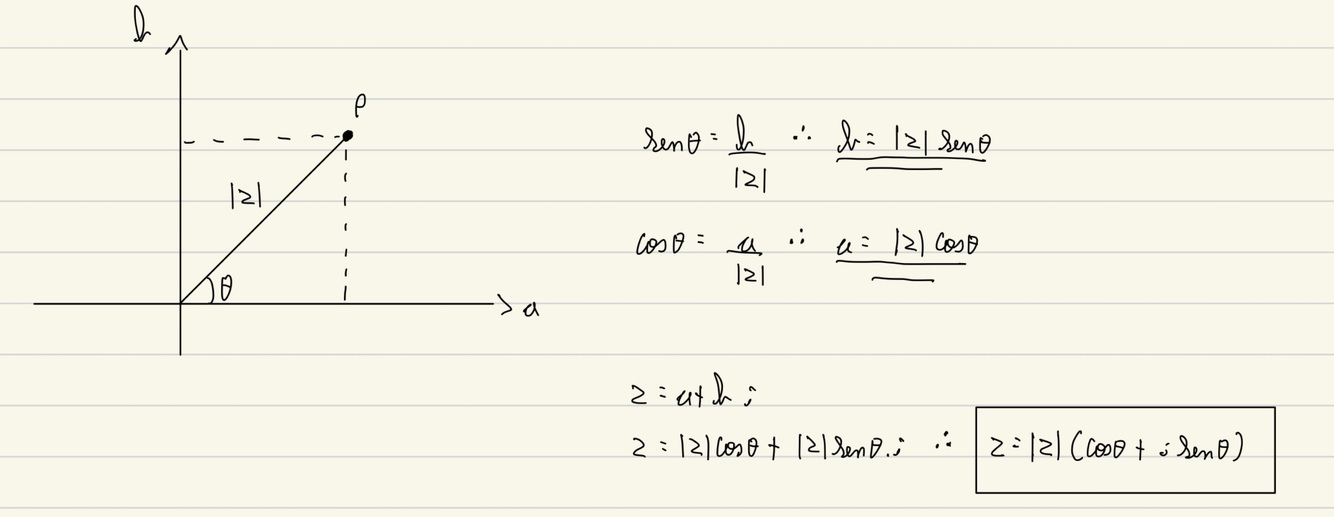 b
P
|z|
θ
a
senθ = b/|z| ∴ b = |z| senθ
cosθ = a/|z| ∴ a = |z| cosθ
z = a + bi
z = |z| cosθ + |z| senθ.i ∴ z = |z| (cosθ + i senθ)